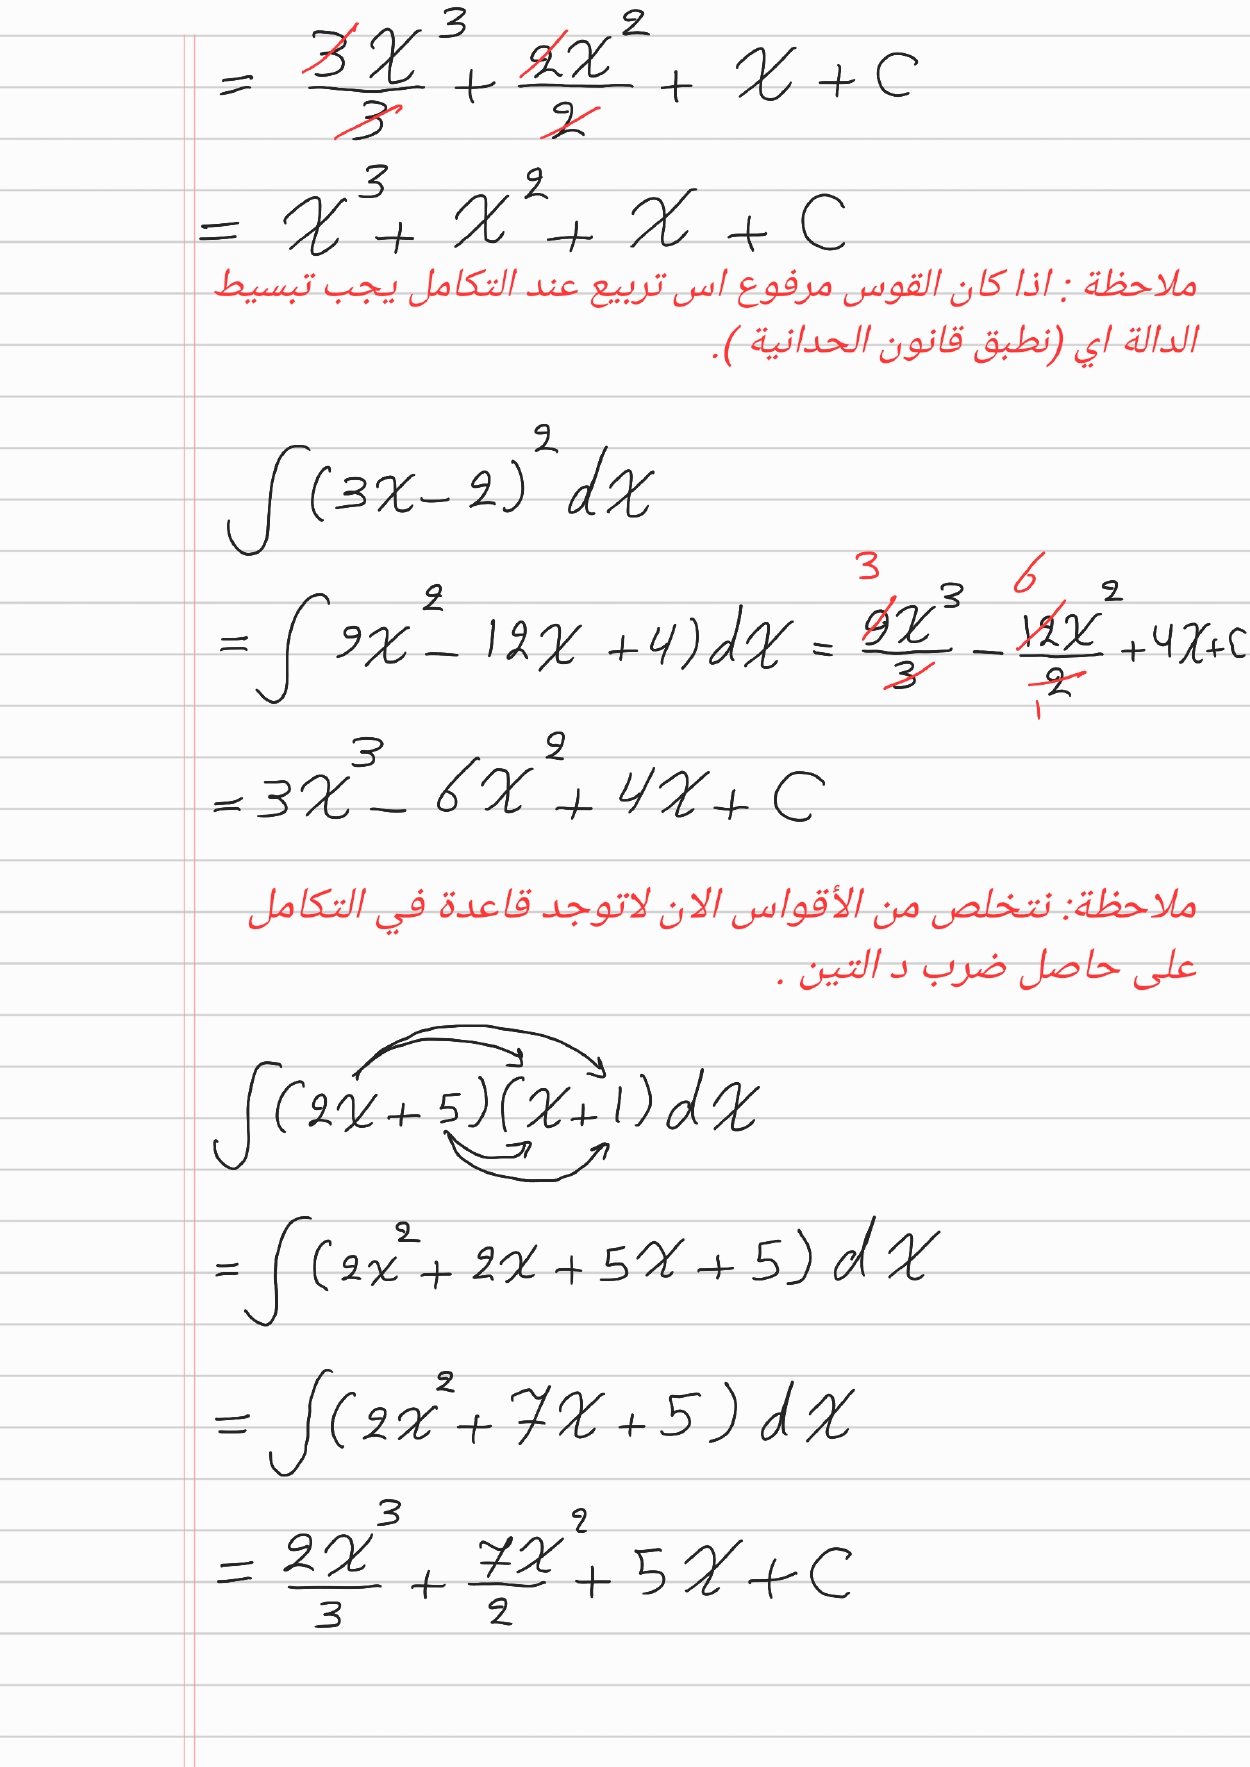 = 3x³/3 + 2x²/2 + x + C
= x³ + x² + x + C
ملاحظة : اذا كان القوس مرفوع اس تربيع عند التكامل يجب تبسيط
الدالة اي (نطبق قانون الحدانية ).
∫(3x - 2)² dx
= ∫ 9x² - 12x + 4) dx = 9x³/3 - 12x²/2 + 4x + C
3 6
1
= 3x³ - 6x² + 4x + C
ملاحظة: نتخلص من الأقواس الان لاتوجد قاعدة في التكامل
على حاصل ضرب د التين .
∫(2x + 5)(x + 1) dx
= ∫(2x² + 2x + 5x + 5) dx
= ∫(2x² + 7x + 5) dx
= 2x³/3 + 7x²/2 + 5x + C